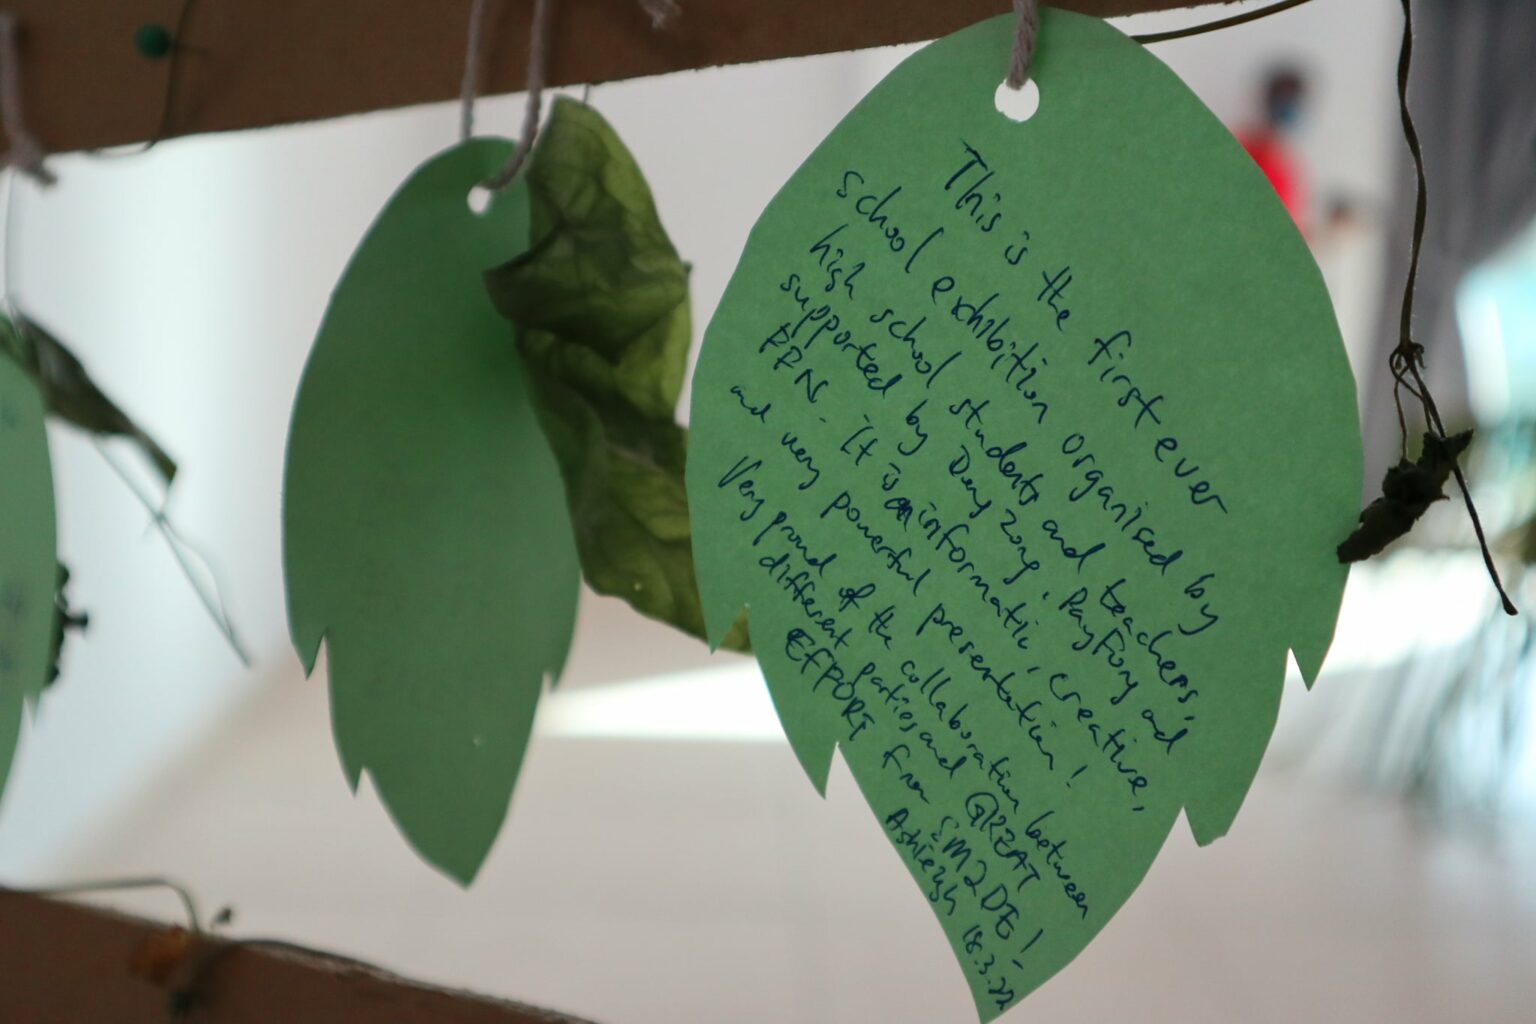 This is the first ever
school exhibition organised by
high school students and teachers,
supported by Deng Zong, PayFung and
FFN. It is informatic, creative,
and very powerful presentation!
Very proud of the collaboration between
different parties and GREAT
EFFORT from SM2DE!
Ashleigh 18.3.22